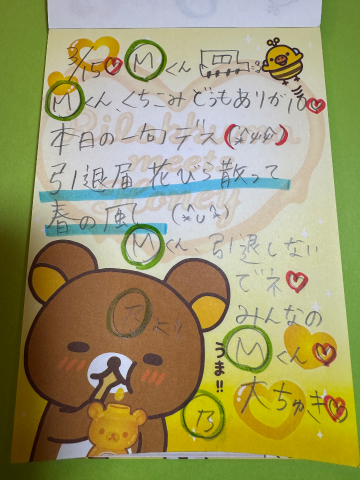 3/15♡ Mくん
Mくん、くちこみどうもありが10♡
本日の一句デス(*^ω^*)
引退届 花びら散って
春の風 (*^u^*)
Mくん、引退しない
でネ♡
みんなの
Mくん♡
大ちゅき♡
うま!!
Rilakkuma
meets
honey